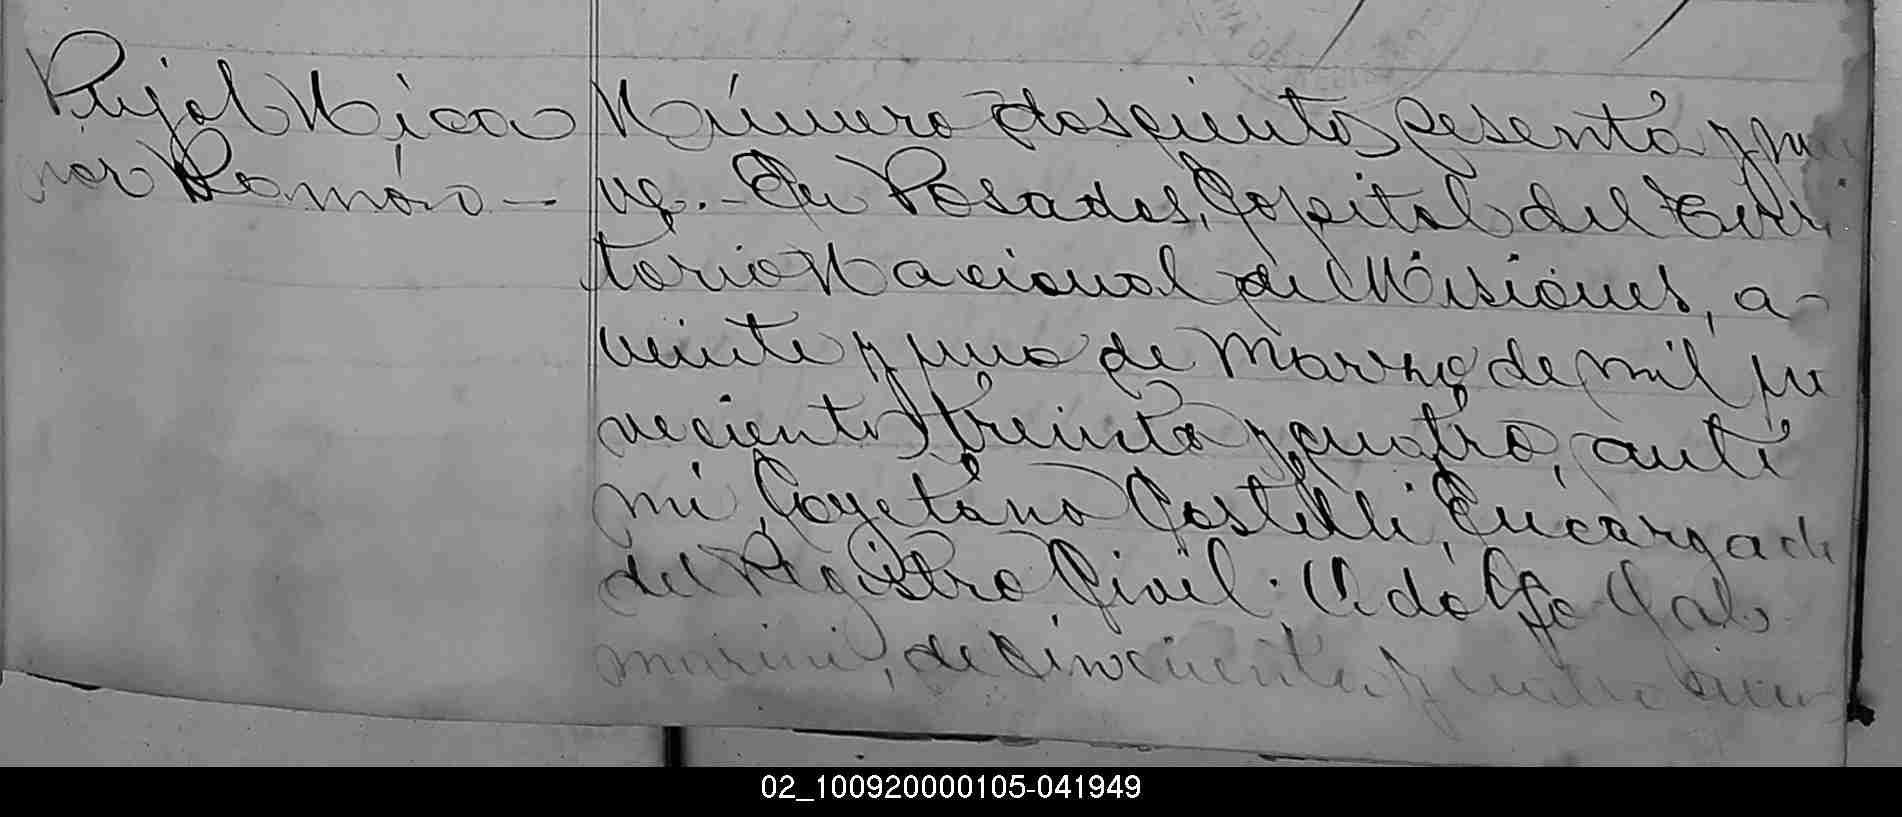 Pujol Nica
nor Román.—
Número doscientos sesenta y nue
ve.- En Posadas, Capital del Terri
torio Nacional de Misiones, a
veinte y uno de Marzo de mil no
vecientos treinta y cuatro, ante
mi, Cayetano Castelli, Encargado
del Registro Civil: Adolfo
marini, de cincuenta y cuatro años
02_100920000105-041949